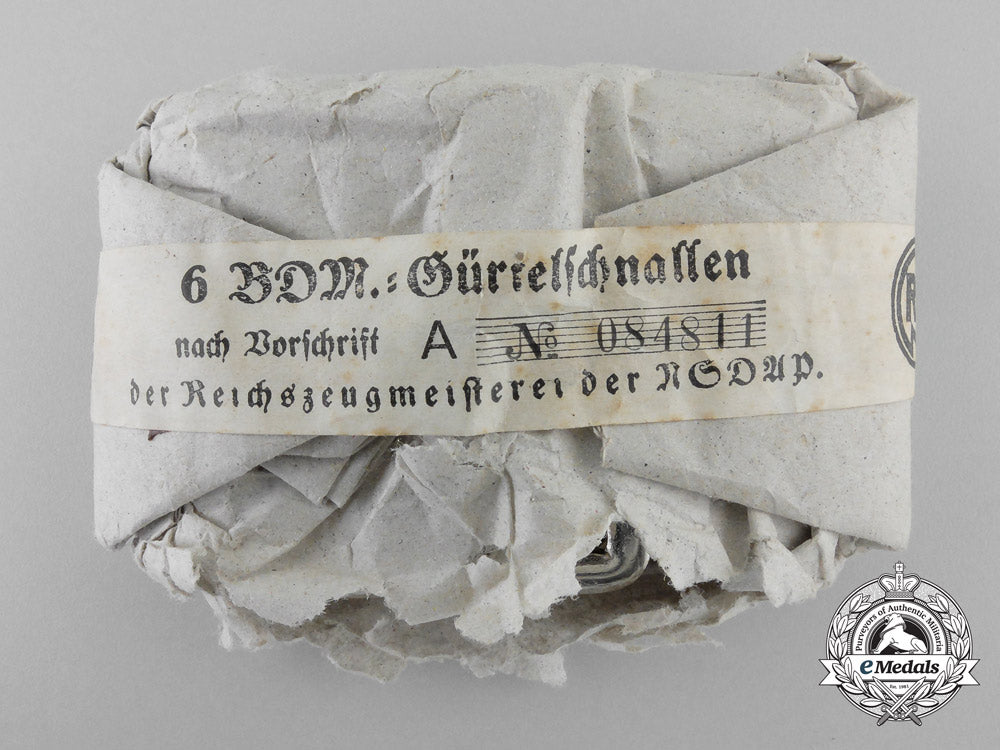 6 BDM.=Gürtelschnallen
nach Vorschrift A № 084811
der Reichszeugmeisterei der NSDAP.
Purveyors of Authentic Militaria
eMedals
Est. 1981